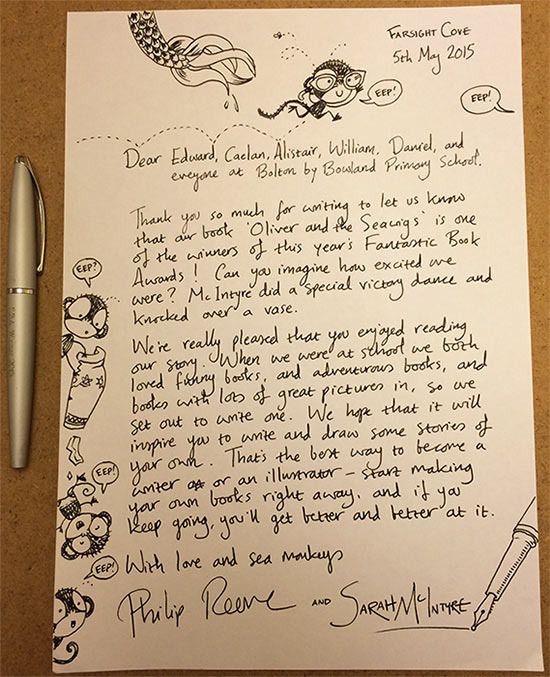 FARSIGHT COVE
5th May 2015
EEP!
EEP!
Dear Edward, Caelan, Alistair, William, Daniel, and
everyone at Bolton by Bowland Primary School.
Thank you so much for writing to let us know
that our book 'Oliver and the Seawigs' is one
of the winners of this year's Fantastic Book
Awards! Can you imagine how excited we
were? McIntyre did a special victory dance and
knocked over a vase.
EEP?
We're really pleased that you enjoyed reading
our story. When we were at school we both
loved funny books, and adventurous books, and
books with lots of great pictures in, so we
set out to write one. We hope that it will
inspire you to write and draw some stories of
your own. That's the best way to become a
writer or an illustrator – start making
your own books right away, and if you
keep going, you'll get better and better at it.
EEP!
With love and sea monkeys
EEP!
Philip Reeve AND SARAH McINTYRE